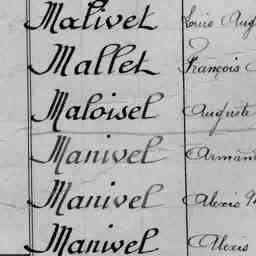 Malivet Louis Aug
Mallet François
Maloisel Auguste
Manivel Arman
Manivel Alexis
Manivel Alexis